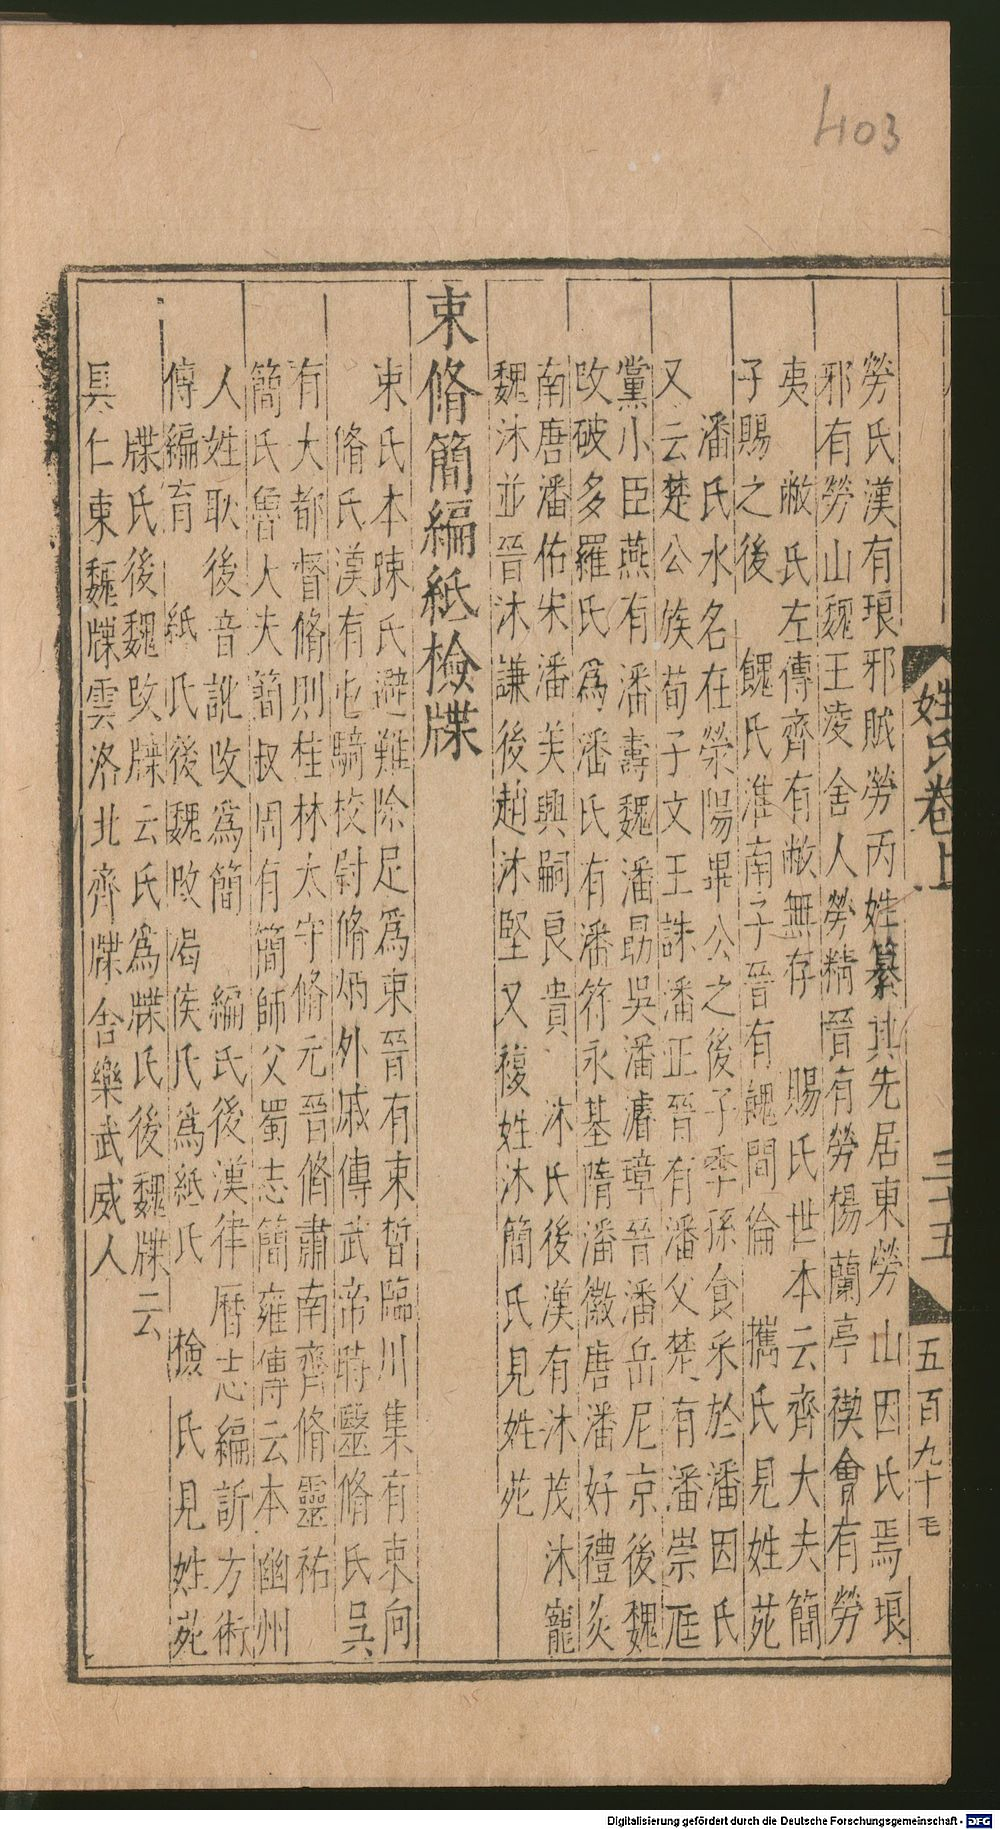 403
姓氏卷上 三十五 五百九十毛
勞氏漢有琅邪賊勞丙姓纂其先居東勞山因氏焉琅
邪有勞山魏王凌舍人勞精晉有勞楊蘭亭禊會有勞
夷 敝氏左傳齊有敝無存 賜氏世本云齊大夫簡
子賜之後 餽氏淮南子晉有餽間倫 攜氏見姓苑
潘氏水名在滎陽畢公之後子季孫食采於潘因氏
又云楚公族荀子文王誅潘正晉有潘父楚有潘崇尫
黨小臣燕有潘壽魏潘勗吳潘濬璋晉潘岳尼京後魏
攺破多羅氏為潘氏有潘符永基隋潘徽唐潘好禮炎
南唐潘佑宋潘美興嗣良貴 沐氏後漢有沐茂沐寵
魏沐並晉沐謙後趙沐堅又複姓沐簡氏見姓苑
束脩簡編紙檢牒
束氏本踈氏避難除足為束晉有束晳臨川集有束向
脩氏漢有屯騎校尉脩炳外戚傳武帝時醫脩氏吳
有大都督脩則桂林太守脩元晉脩肅南齊脩靈祐
簡氏魯大夫簡叔周有簡師父蜀志簡雍傳云本幽州
人姓耿後音訛攺為簡 編氏後漢律曆志編訢方術
傳編育 紙氏後魏攺渴侯氏為紙氏 檢氏見姓苑
牒氏後魏攺牒云氏為牒氏後魏牒云
具仁東魏牒雲洛北齊牒舍樂武威人
Digitalisierung gefördert durch die Deutsche Forschungsgemeinschaft - DFG